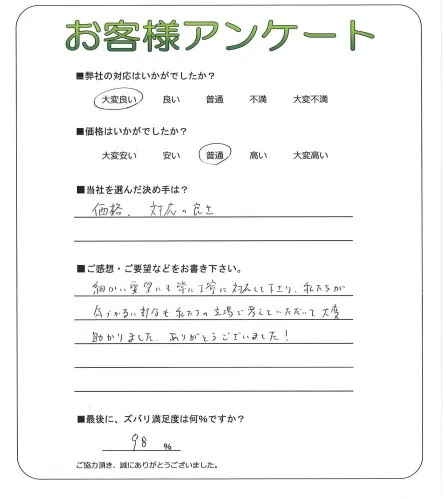 お客様アンケート
■弊社の対応はいかがでしたか？
大変良い 良い 普通 不満 大変不満
■価格はいかがでしたか？
大変安い 安い 普通 高い 大変高い
■当社を選んだ決め手は？
価格、対応の良さ
■ご感想・ご要望などをお書き下さい。
細かい要望にも常に丁寧に対応して下さり、私たちが
気づかない部分も私たちの立場で考えていただいて大変
助かりました。ありがとうございました！
■最後に、ズバリ満足度は何%ですか？
98 %
ご協力頂き、誠にありがとうございました。